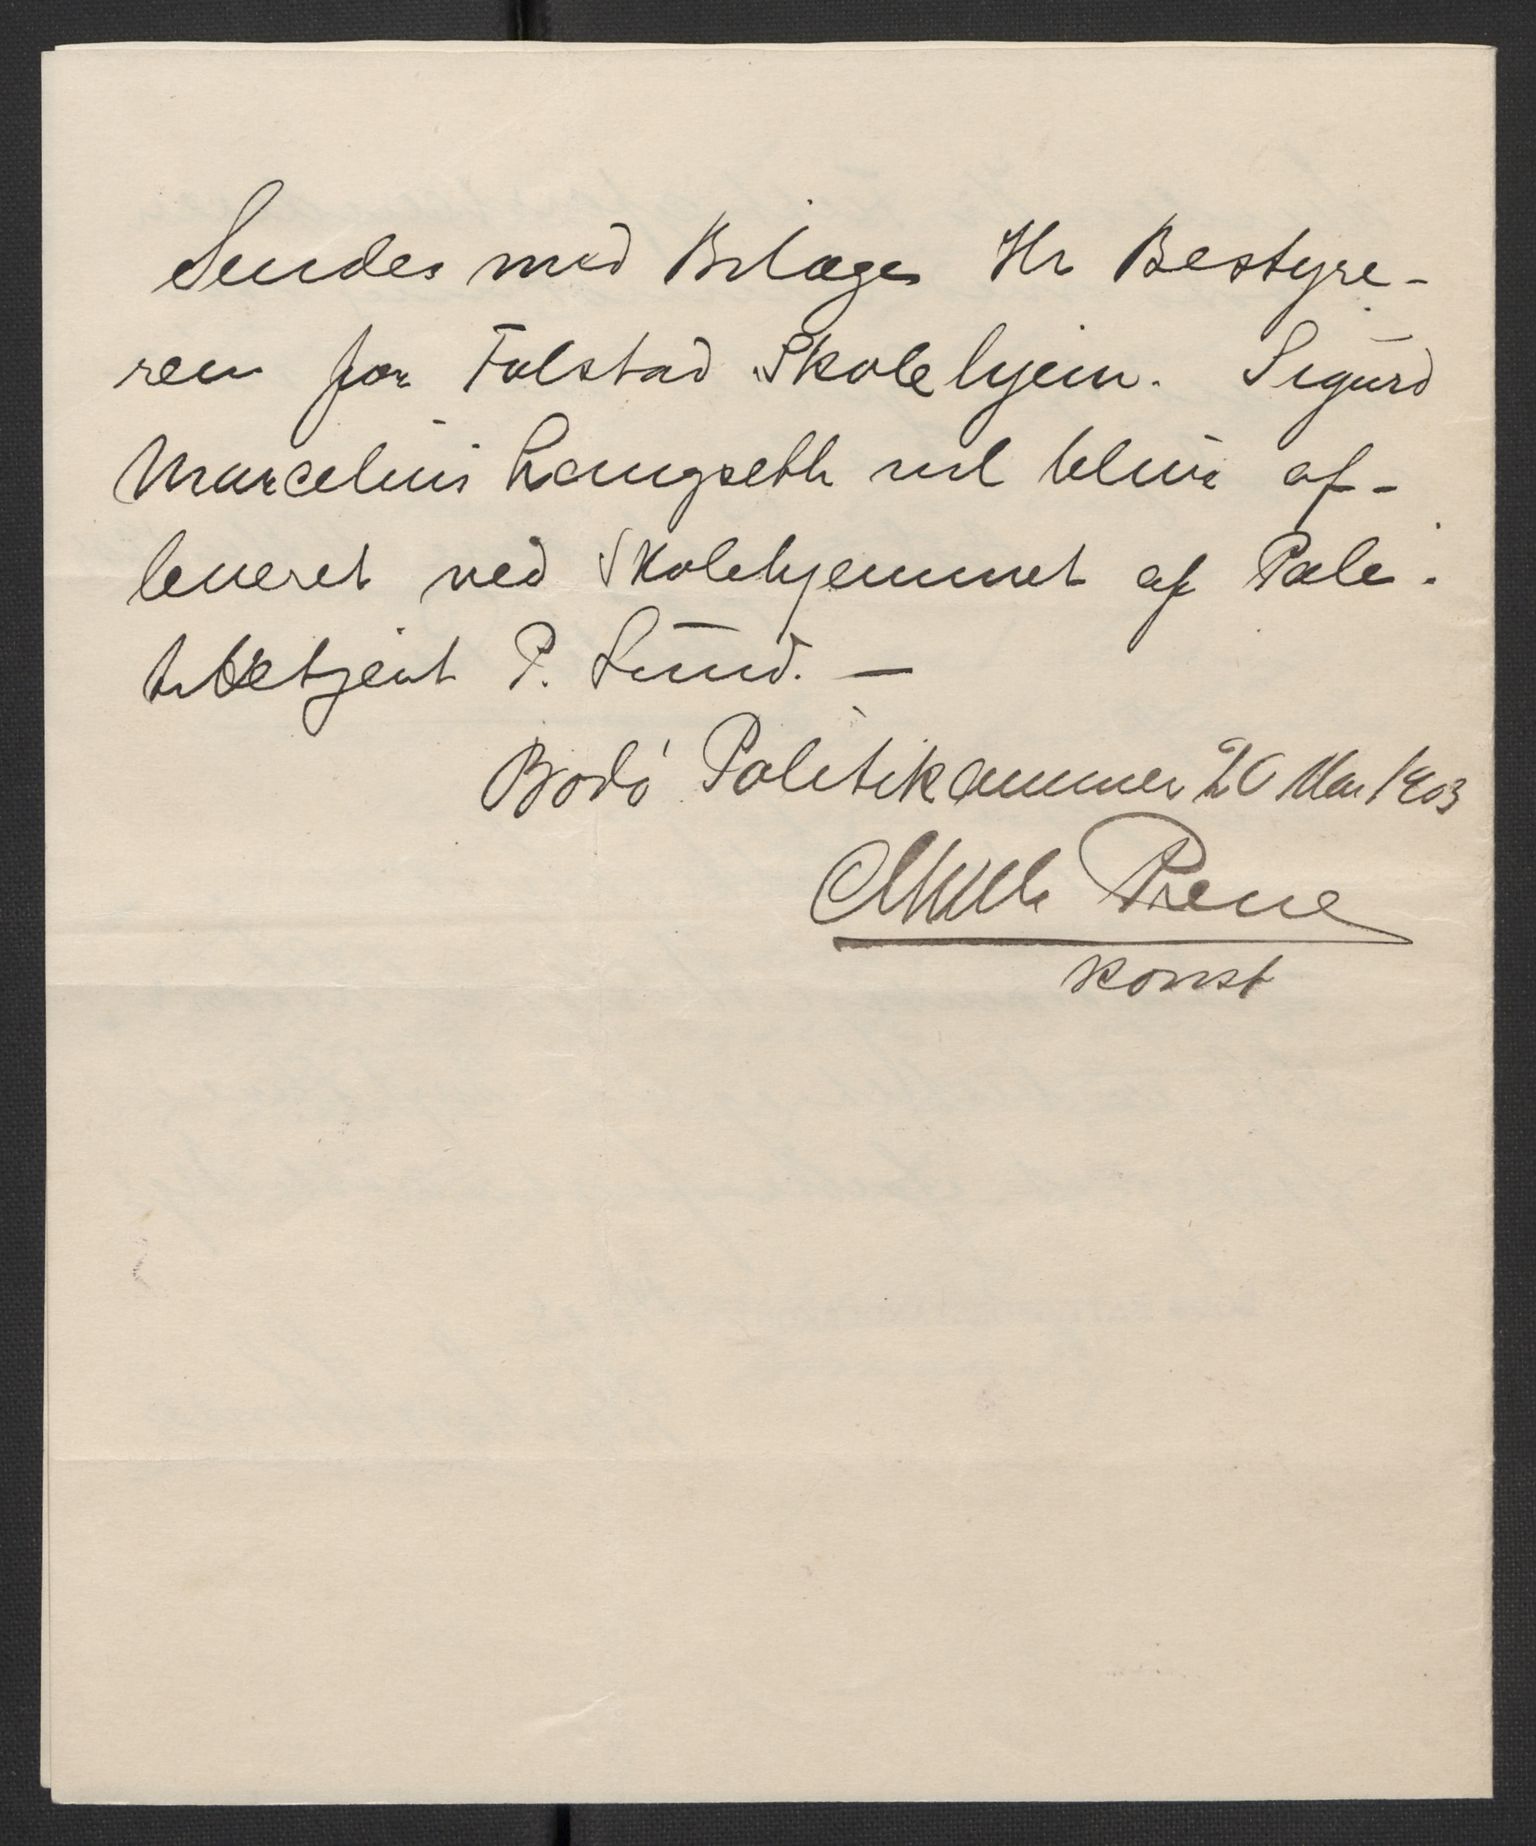 Sendes med Bilage Hr Bestyre-
ren for Falstad Skolehjem. Sigurd
Marcelius Langseth vil blive af-
leveret ved Skolehjemmet af Poli-
tibetjent P. Lund. —
Bodö Politikammer 20 Mai 1903
Prene
konst